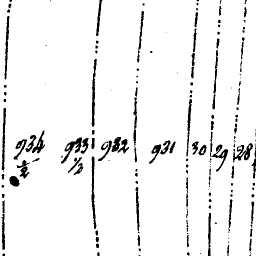 934 933 932 931 30 29 28
1/2 1/2